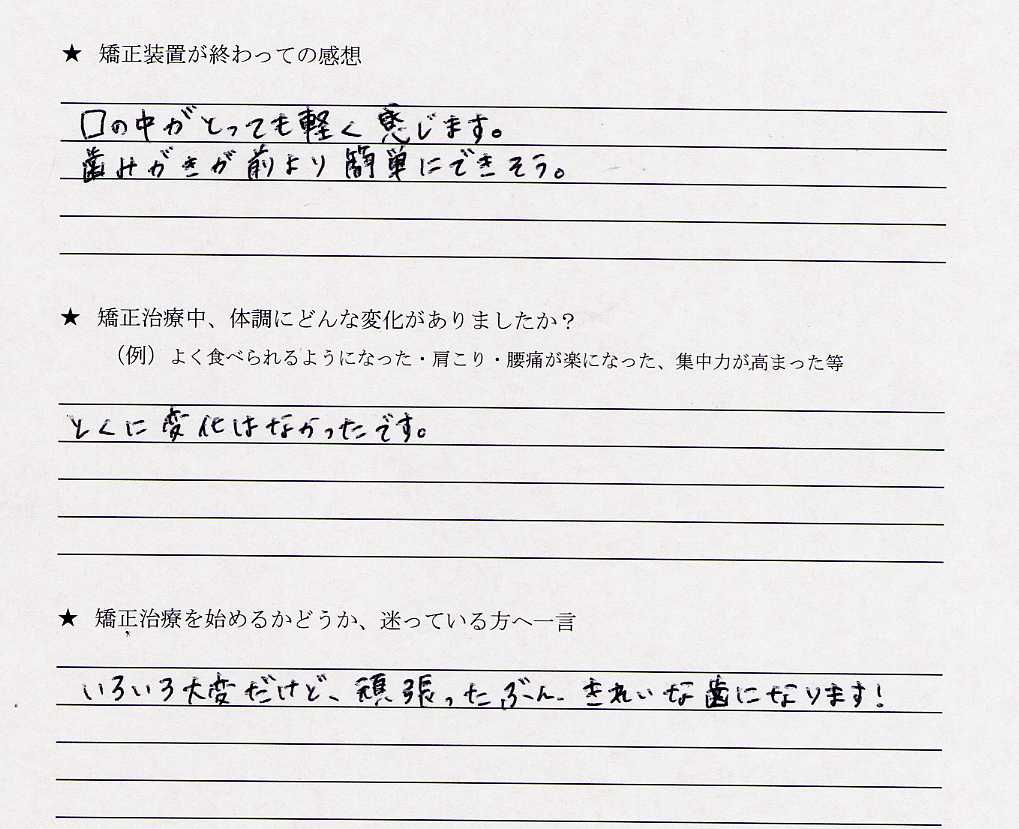 ★ 矯正装置が終わっての感想
口の中がとっても軽く感じます。
歯みがきが前より簡単にできそう。
★ 矯正治療中、体調にどんな変化がありましたか？
（例）よく食べられるようになった・肩こり・腰痛が楽になった、集中力が高まった等
とくに変化はなかったです。
★ 矯正治療を始めるかどうか、迷っている方へ一言
いろいろ大変だけど、頑張ったぶん、きれいな歯になります!